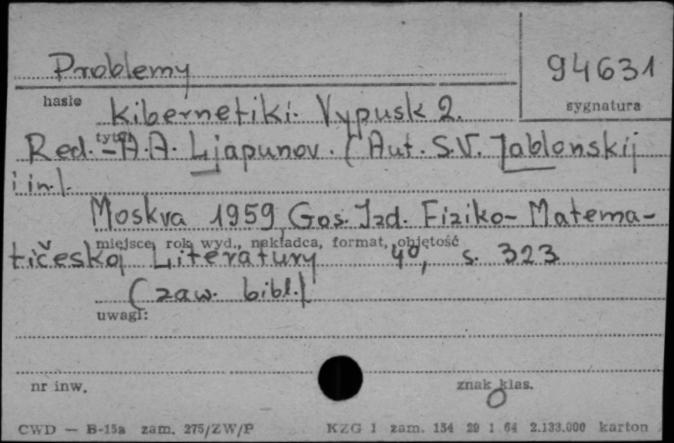 Problemy
94631
hasło
sygnatura
Kibernetiki. Vypusk 2.
tytuł
Red. - A.A. Ljapunov. (Aut. S.V. Jablonskij
i in.).
Moskva 1959, Gos. Izd. Fiziko-Matema-
miejsce, rok wyd., nakładca, format, objętość
tičeskoj Literatury 4°, s. 323
(zaw. bibl.)
uwagi:
nr inw.
znak klas.
CWD — B-15a zam. 275/ZW/P KZG 1 zam. 154 29 1 64 2.133.000 karton